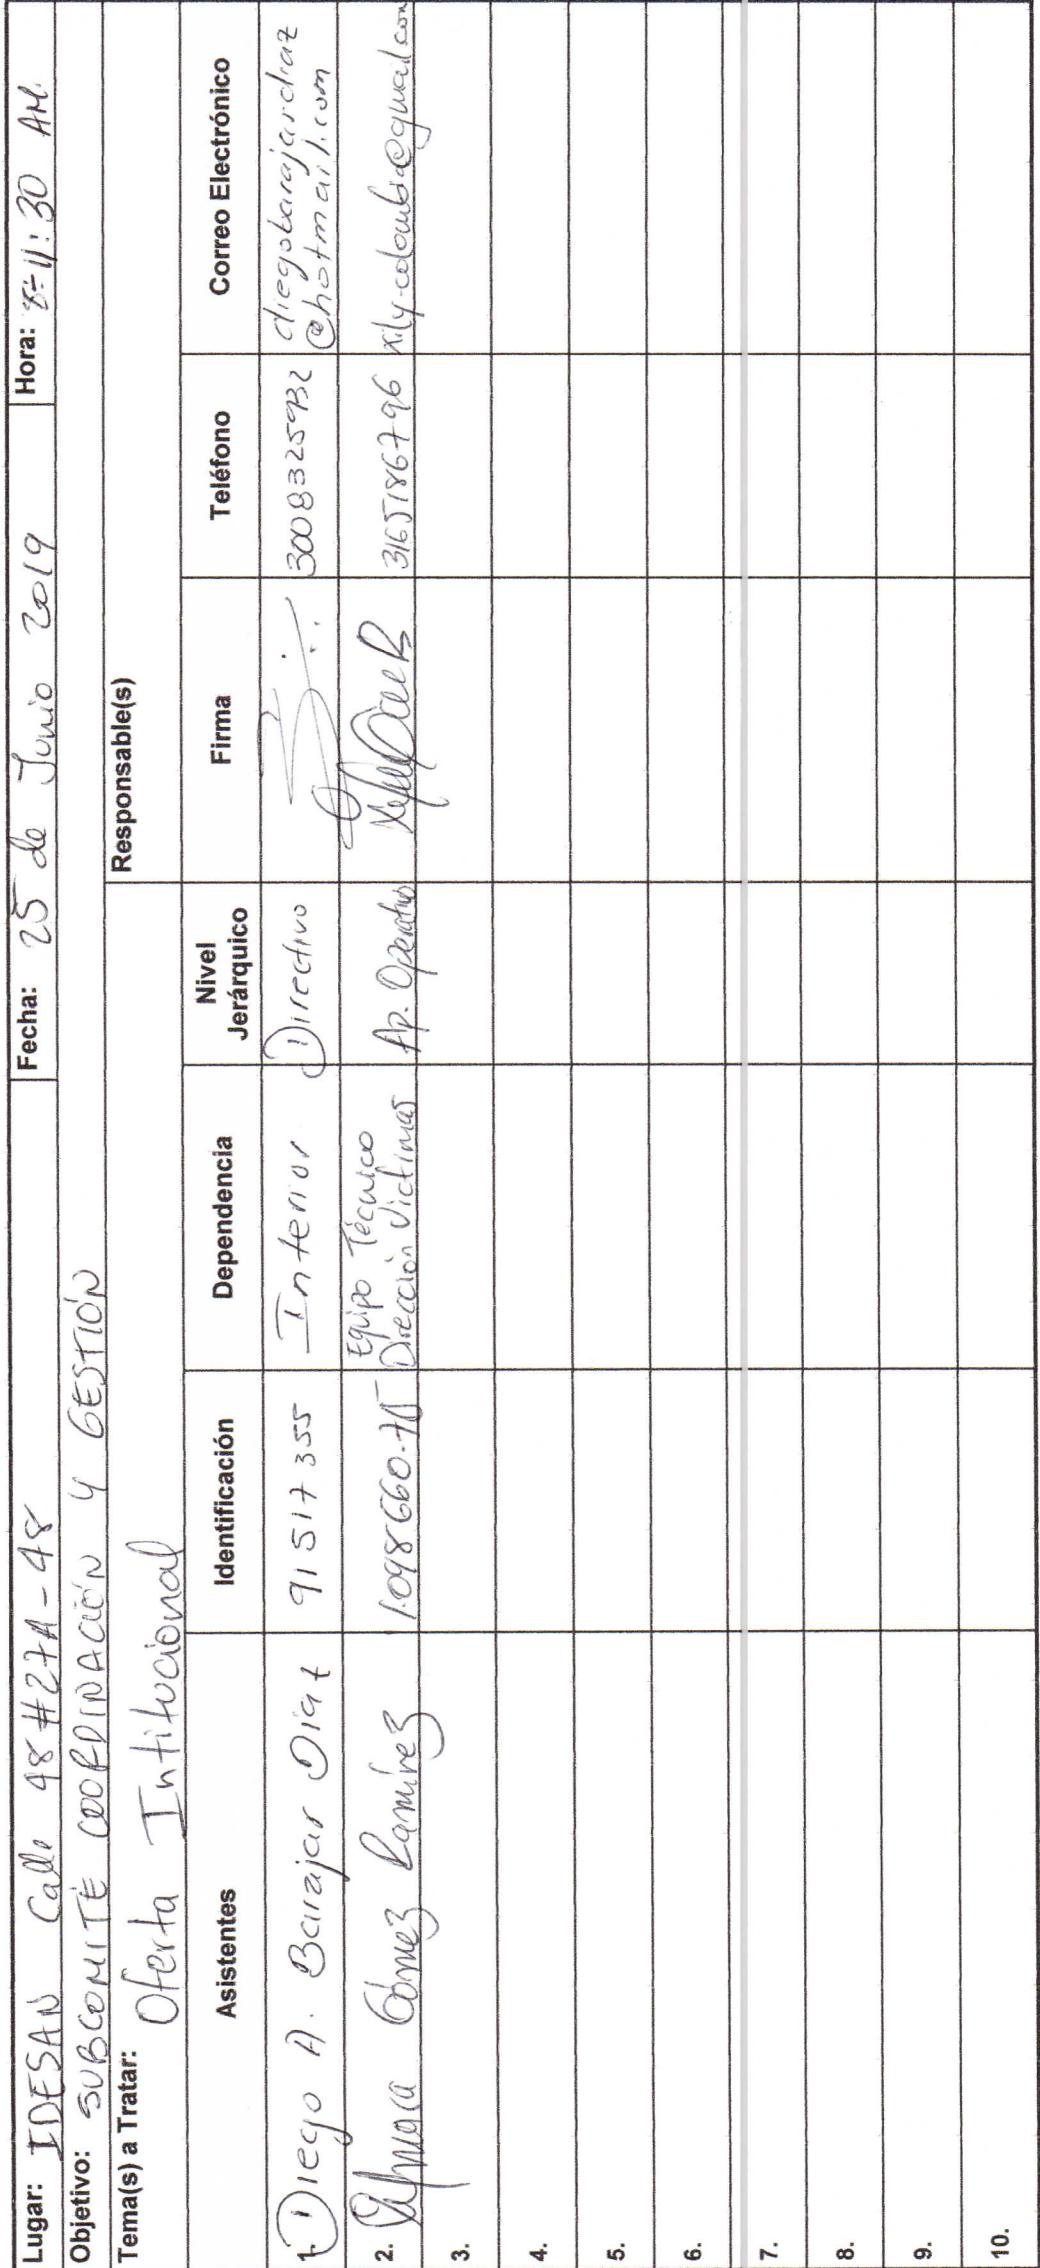 Lugar: IDESAN Calle 48 #27A-48 Fecha: 25 de Junio 2019 Hora: 8-11:30 AM.
Objetivo: SUBCOMITÉ COORDINACIÓN Y GESTIÓN
Tema(s) a Tratar: Responsable(s)
Oferta Intitucional
Asistentes Identificación Dependencia Nivel Jerárquico Firma Teléfono Correo Electrónico
1. Diego A. Barajas Diaz 91517355 Interior Directivo 3008325932 diegobarajasdiaz
@hotmail.com
2. Gómez Ramírez Equipo Técnico
Dirección Victimas Ap. Operativo 3165186796
3.
4.
5.
6.
7.
8.
9.
10.